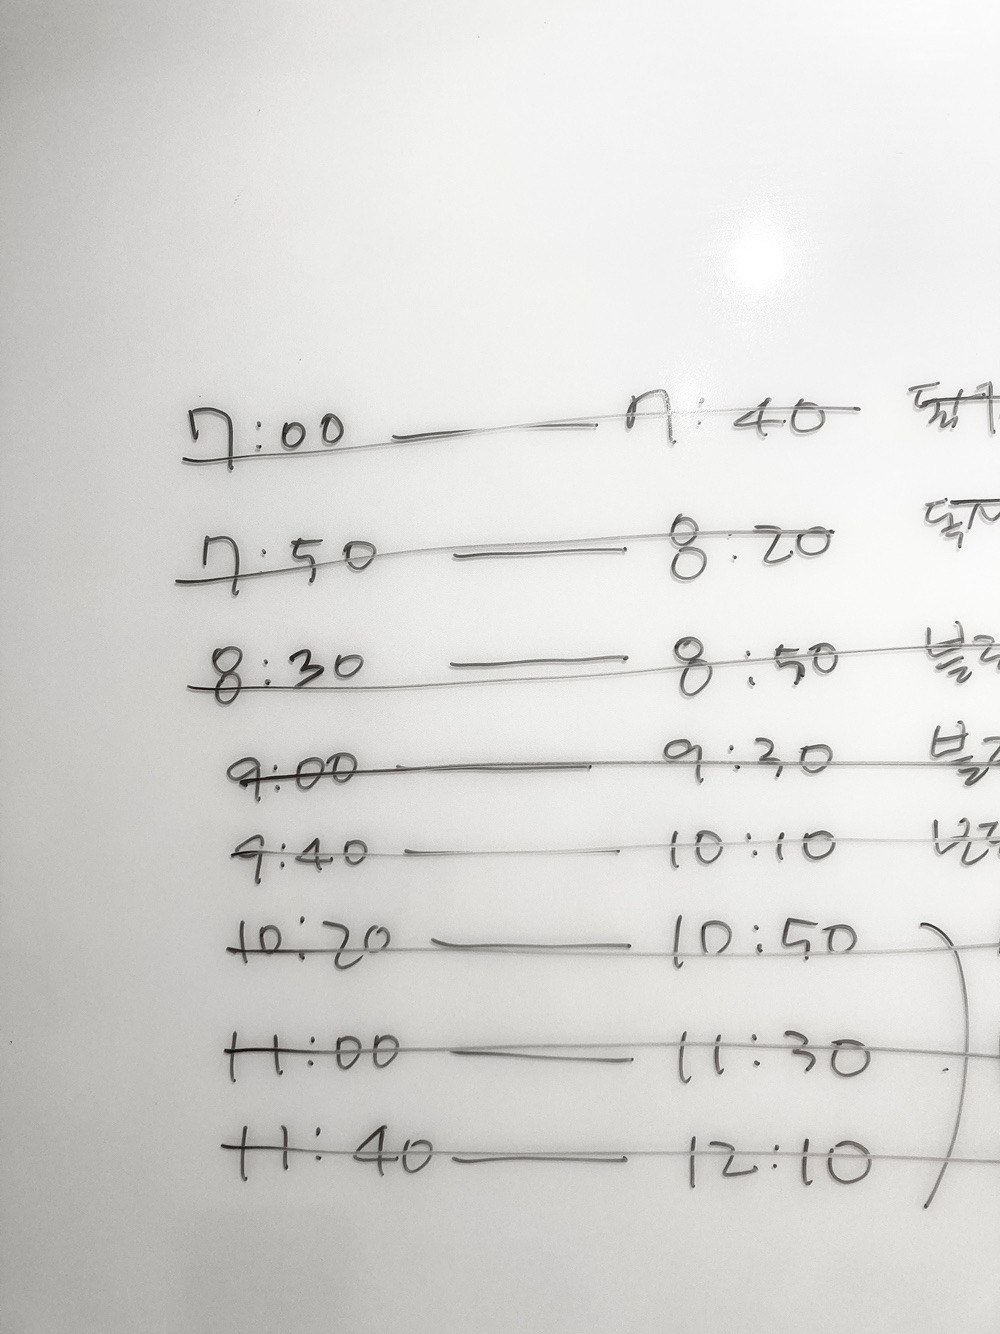 7:00 — 7:40
7:50 — 8:20
8:30 — 8:50
9:00 — 9:30
9:40 — 10:10
10:20 — 10:50
11:00 — 11:30
11:40 — 12:10